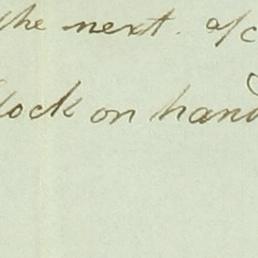 the next. a/c
lock on hand